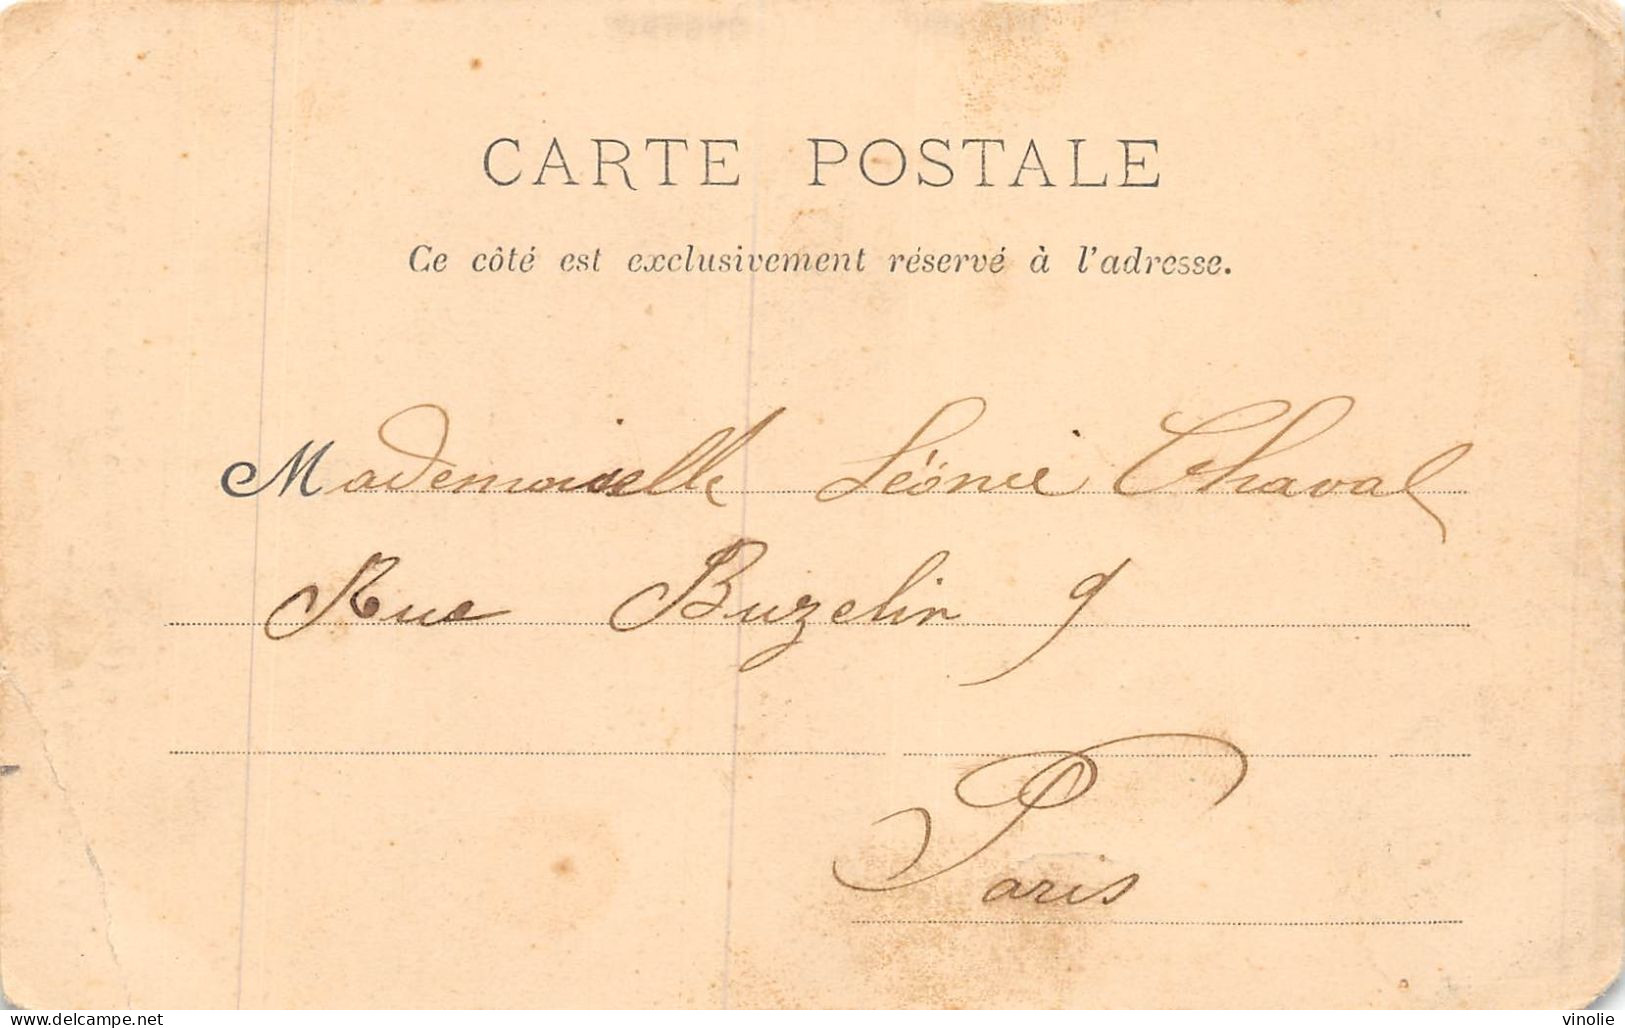 CARTE POSTALE
Ce côté est exclusivement réservé à l'adresse.
Mademoiselle Léonie Chaval
Rue Buzelin 9
Paris
delcampe.net
vinolie